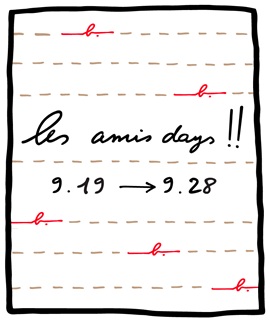 b.
b.
les amis days!!
9.19 → 9.28
b.
b.
b.